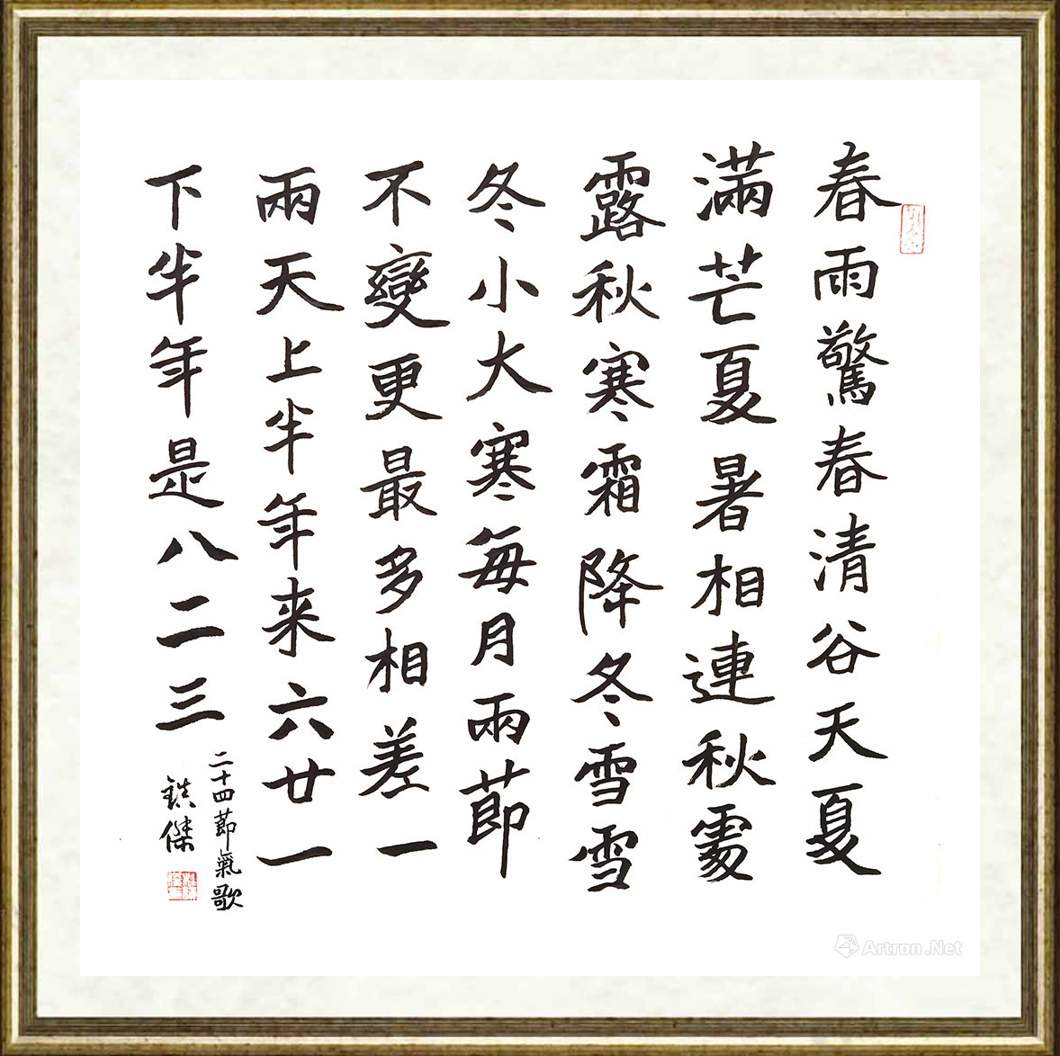 春雨驚春清谷天夏
滿芒夏暑相連秋處
露秋寒霜降冬雪雪
冬小大寒每月兩節
不變更最多相差一
兩天上半年来六廿一
下半年是八二三
二十四節氣歌
傑
Artron.Net